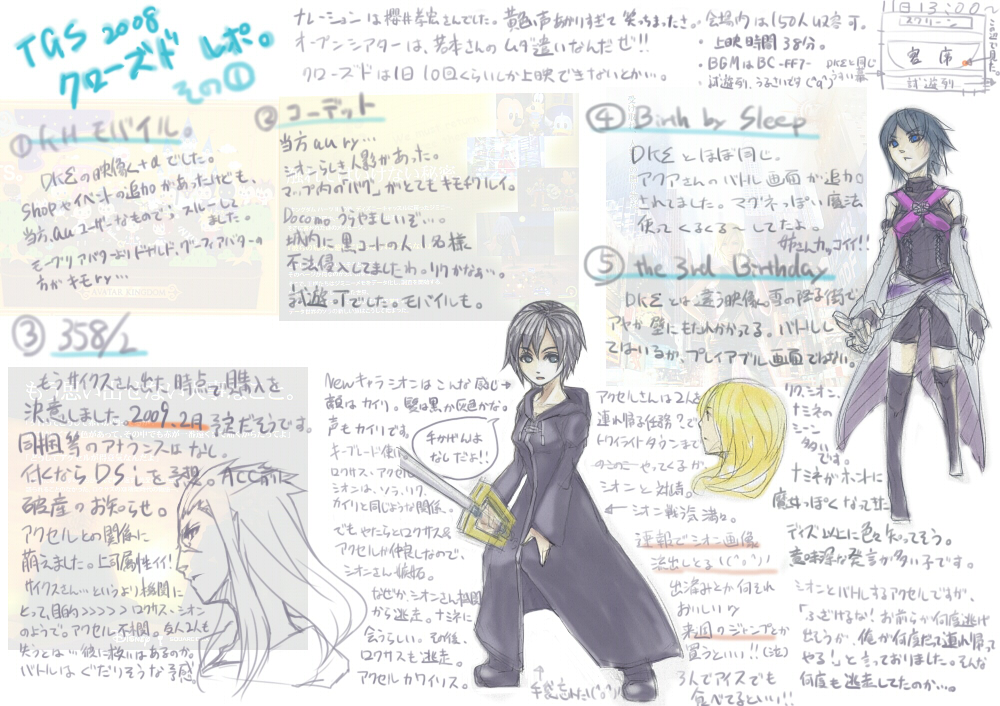 TGS 2008
クローズド レポ。
その①
ナレーションは櫻井孝宏さんでした。黄色い声あがりすぎて笑っちまったさ。
オープンシアターは、若本さんのムダ遣いなんだぜ!!
クローズドは1日10回くらいしか上映できないとかい…。
会場内は150人収容可。
・上映時間38分。
・BGMはBC-FF7-
・試遊列、うるさいです(°д°)
1日13:00〜
スクリーン
客席
試遊列
DKΣと同じ
うすい幕
① KHモバイル。
DKΣの映像+αでした。
Shopやイベントの追加があったけども、
当方、auユーザーなものでぅスルーして
ました。
モーグリアバターよりドナルド、グーフィアバターの
方がキモry…
② コーデット
当方au ry…
シオンらしき人影があった。
マップ内の「バグ」がとてもキモチワルイ。
Docomoうらやましいぞ…。
城内に黒コートの人1名様
不法侵入してましたわ。リクかなぁ…。
試遊、Tでした。モバイルも。
③ 358/2
もうサイクスさん出た時点で購入を
決意しました。2009.2月予定だそうです。
同梱等のアナウンスはなし。
付くならDSiを予想。ACC前に
破産のお知らせ。
アクセルとの関係に
萌えました。上司属性イイ!
サイクスさん…というより機関に
とって、目的>>>>>ロクサス、シオン
のようで。アクセル不憫。
バトルはぐだりそうな予感。
Newキャラシオンはこんな感じ→
顔はカイリ。髪は黒か灰色かな。
声もカイリです。
キーブレード使い
ロクサス、アクセル
シオンは、ソラ、リク、
カイリと同じような関係。
でもやたらとロクサス&
アクセルが仲良しなので、
シオンさん嫉妬。
なぜか、シオンさん機関
から逃走。ナミネに
会うらしい。その後、
ロクサスも逃走。
アクセルカワイソス。
手かげんよ
なしだよ!!
↑手袋忘れた(°o°)/
④ Birth by Sleep
DKΣとほぼ同じ。
アクアさんのバトル画面が追加
されてました。マグネっぽい魔法
使ってくるくる〜してたよ。
姉さんカッコイイ!!
⑤ the 3rd Birthday
DKΣとは違う映像。雪の降る街で
アヤが壁にもたれかかってる。バトルし
てはいるが、プレイアブル画面ではない。
アクセルさんは2人を
連れ帰る任務?で
トワイライトタウンまで
のこのこやってくるが
シオンと対峙。
← シオン戦う気満々。
速報でシオン画像
流出しとる!(°o°)/
出済みとか何それ
おいしい?
来週のジャンプとか
買うといい!!(泣)
3人でアイスでも
食べてるといい!!
リク、シオン、
ナミネの
シーン
多い
です。
ナミネがホントに
魔女っぽくなってきた
ディズ以上に色々知ってそう。
意味深な発言が多い子です。
シオンとバトルするアクセルですが、
「ふざけるな!お前らが何度逃げ
出しようが、俺が何度だって連れ帰って
やる!」と言っておりました。そんな
何度も逃走してたのか…。